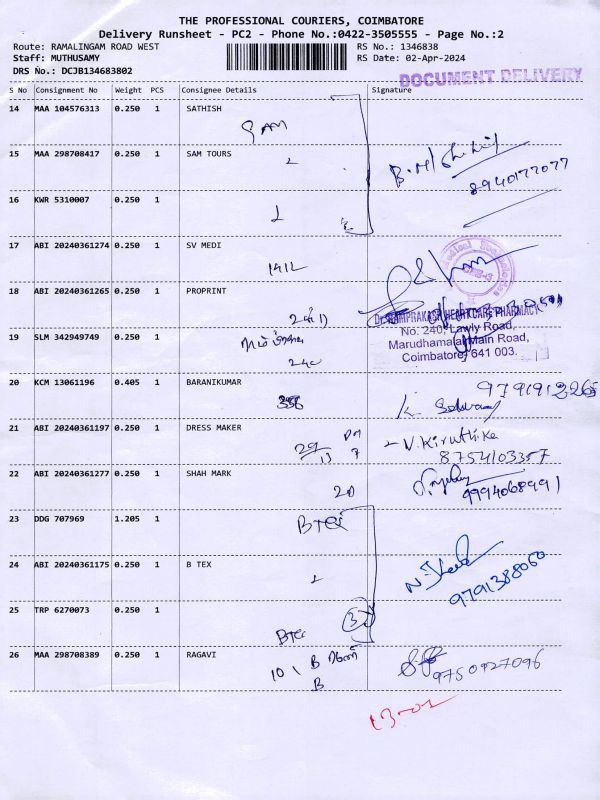 THE PROFESSIONAL COURIERS, COIMBATORE
Delivery Runsheet - PC2 - Phone No.:0422-3505555 - Page No.:2
Route: RAMALINGAM ROAD WEST RS No.: 1346838
Staff: MUTHUSAMY RS Date: 02-Apr-2024
DRS No.: DCJB134683802
DOCUMENT DELIVERY
S No Consignment No Weight PCS Consignee Details Signature
14 MAA 104576313 0.250 1 SATHISH
15 MAA 298708417 0.250 1 SAM TOURS
8940177077
16 KWR 5310007 0.250 1
17 ABI 20240361274 0.250 1 SV MEDI
18 ABI 20240361265 0.250 1 PROPRINT
HEALTHCARE PHARMACY
No. 240, Lawly Road,
19 SLM 342949749 0.250 1
Marudhamalai Main Road,
240
Coimbatore, 641 003.
20 KCM 13061196 0.405 1 BARANIKUMAR
21 ABI 20240361197 0.250 1 DRESS MAKER
29/13
V. Kiruthika
8754103357
22 ABI 20240361277 0.250 1 SHAH MARK
20
9994068991
23 DDG 707969 1.205 1
24 ABI 20240361175 0.250 1 B TEX
9791388060
25 TRP 6270073 0.250 1
3
26 MAA 298708389 0.250 1 RAGAVI
101 B
9750927096
B
13-02